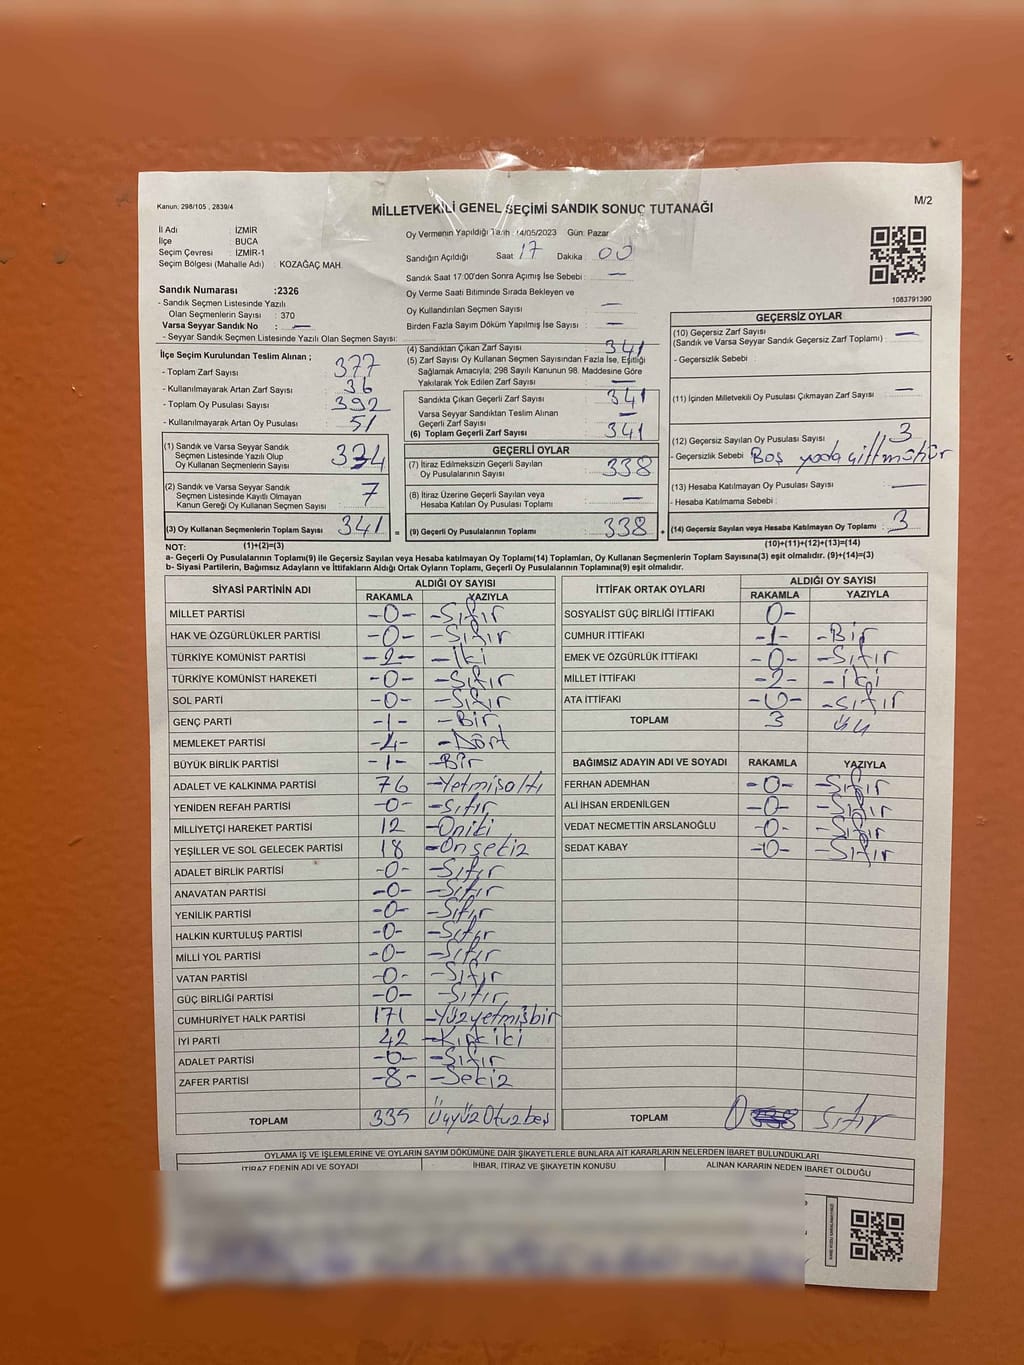 Kanun: 298/105 , 2839/4
MİLLETVEKİLİ GENEL SEÇİMİ SANDIK SONUÇ TUTANAĞI
M/2
İl Adı : İZMİR
İlçe : BUCA
Seçim Çevresi : İZMİR-1
Seçim Bölgesi (Mahalle Adı) : KOZAĞAÇ MAH.
Oy Vermenin Yapıldığı Tarih : 14/05/2023 Gün: Pazar
Sandığın Açıldığı Saat 17 Dakika 00
Sandık Saat 17:00'den Sonra Açımış İse Sebebi : —
Oy Verme Saati Bitiminde Sırada Bekleyen ve
Oy Kullandırılan Seçmen Sayısı : —
Birden Fazla Sayım Döküm Yapılmış İse Sayısı : —
1083791390
Sandık Numarası :2326
- Sandık Seçmen Listesinde Yazılı
Olan Seçmenlerin Sayısı : 370
Varsa Seyyar Sandık No : —
- Seyyar Sandık Seçmen Listesinde Yazılı Olan Seçmen Sayısı:
İlçe Seçim Kurulundan Teslim Alınan ;
- Toplam Zarf Sayısı : 377
- Kullanılmayarak Artan Zarf Sayısı : 36
- Toplam Oy Pusulası Sayısı : 392
- Kullanılmayarak Artan Oy Pusulası : 51
(1) Sandık ve Varsa Seyyar Sandık
Seçmen Listesinde Yazılı Olup
Oy Kullanan Seçmenlerin Sayısı : 334
(2) Sandık ve Varsa Seyyar Sandık
Seçmen Listesinde Kayıtlı Olmayan
Kanun Gereği Oy Kullanan Seçmen Sayısı : 7
(3) Oy Kullanan Seçmenlerin Toplam Sayısı : 341
(4) Sandıktan Çıkan Zarf Sayısı : 341
(5) Zarf Sayısı Oy Kullanan Seçmen Sayısından Fazla İse, Eşitliği
Sağlamak Amacıyla; 298 Sayılı Kanunun 98. Maddesine Göre
Yakılarak Yok Edilen Zarf Sayısı : —
Sandıkta Çıkan Geçerli Zarf Sayısı : 341
Varsa Seyyar Sandıktan Teslim Alınan
Geçerli Zarf Sayısı : —
(6) Toplam Geçerli Zarf Sayısı : 341
GEÇERLİ OYLAR
(7) İtiraz Edilmeksizin Geçerli Sayılan
Oy Pusulalarının Sayısı : 338
(8) İtiraz Üzerine Geçerli Sayılan veya
Hesaba Katılan Oy Pusulası Toplamı : —
= (9) Geçerli Oy Pusulalarının Toplamı : 338 +
GEÇERSİZ OYLAR
(10) Geçersiz Zarf Sayısı
(Sandık ve Varsa Seyyar Sandık Geçersiz Zarf Toplamı) : —
- Geçersizlik Sebebi :
(11) İçinden Milletvekili Oy Pusulası Çıkmayan Zarf Sayısı : —
(12) Geçersiz Sayılan Oy Pusulası Sayısı : 3
- Geçersizlik Sebebi : Boş yada çift mühür
(13) Hesaba Katılmayan Oy Pusulası Sayısı : —
- Hesaba Katılmama Sebebi :
(14) Geçersiz Sayılan veya Hesaba Katılmayan Oy Toplamı : 3
NOT: (1)+(2)=(3) (10)+(11)+(12)+(13)=(14)
a- Geçerli Oy Pusulalarının Toplamı(9) ile Geçersiz Sayılan veya Hesaba katılmayan Oy Toplamı(14) Toplamları, Oy Kullanan Seçmenlerin Toplam Sayısına(3) eşit olmalıdır. (9)+(14)=(3)
b- Siyasi Partilerin, Bağımsız Adayların ve İttifakların Aldığı Ortak Oyların Toplamı, Geçerli Oy Pusulalarının Toplamına(9) eşit olmalıdır.
SİYASİ PARTİNİN ADI ALDIĞI OY SAYISI
RAKAMLA YAZIYLA
MİLLET PARTİSİ -0- -Sıfır
HAK VE ÖZGÜRLÜKLER PARTİSİ -0- -Sıfır
TÜRKİYE KOMÜNİST PARTİSİ -2- -İki
TÜRKİYE KOMÜNİST HAREKETİ -0- -Sıfır
SOL PARTİ -0- -Sıfır
GENÇ PARTİ -1- -Bir
MEMLEKET PARTİSİ -4- -Dört
BÜYÜK BİRLİK PARTİSİ -1- -Bir
ADALET VE KALKINMA PARTİSİ 76 -Yetmişaltı
YENİDEN REFAH PARTİSİ -0- -Sıfır
MİLLİYETÇİ HAREKET PARTİSİ 12 -Oniki
YEŞİLLER VE SOL GELECEK PARTİSİ 18 -Onsekiz
ADALET BİRLİK PARTİSİ -0- -Sıfır
ANAVATAN PARTİSİ -0- -Sıfır
YENİLİK PARTİSİ -0- -Sıfır
HALKIN KURTULUŞ PARTİSİ -0- -Sıfır
MİLLİ YOL PARTİSİ -0- -Sıfır
VATAN PARTİSİ -0- -Sıfır
GÜÇ BİRLİĞİ PARTİSİ -0- -Sıfır
CUMHURİYET HALK PARTİSİ 171 -Yüzyetmişbir
İYİ PARTİ 42 -Kırk iki
ADALET PARTİSİ -0- -Sıfır
ZAFER PARTİSİ -8- -Sekiz
TOPLAM 335 Üçyüz Otuzbeş
İTTİFAK ORTAK OYLARI ALDIĞI OY SAYISI
RAKAMLA YAZIYLA
SOSYALİST GÜÇ BİRLİĞİ İTTİFAKI 0-
CUMHUR İTTİFAKI -1- -Bir
EMEK VE ÖZGÜRLÜK İTTİFAKI -0- -Sıfır
MİLLET İTTİFAKI -2- -iki
ATA İTTİFAKI -0- -sıfır
TOPLAM 3 üç
BAĞIMSIZ ADAYIN ADI VE SOYADI RAKAMLA YAZIYLA
FERHAN ADEMHAN -0- -Sıfır
ALİ İHSAN ERDENİLGEN -0- -Sıfır
VEDAT NECMETTİN ARSLANOĞLU -0- -Sıfır
SEDAT KABAY -0- -Sıfır
TOPLAM 0 sıfır
OYLAMA İŞ VE İŞLEMLERİNE VE OYLARIN SAYIM DÖKÜMÜNE DAİR ŞİKAYETLERLE BUNLARA AİT KARARLARIN NELERDEN İBARET BULUNDUKLARI
İTİRAZ EDENİN ADI VE SOYADI İHBAR, İTİRAZ VE ŞİKAYETİN KONUSU ALINAN KARARIN NEDEN İBARET OLDUĞU